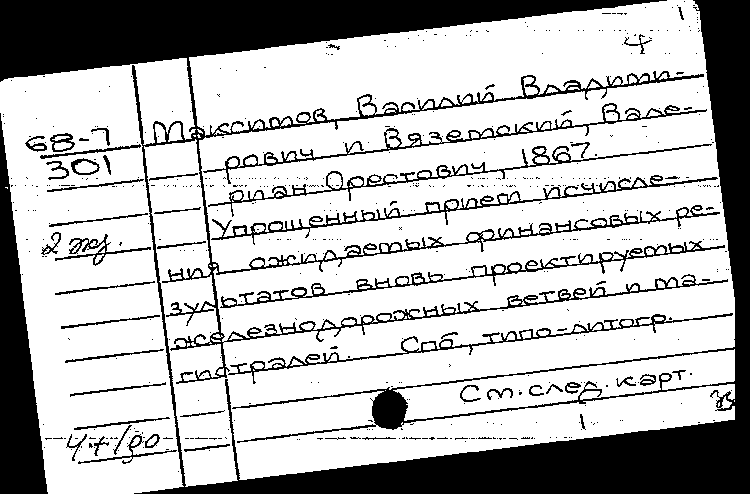 1
4
68-7
301
Максимов, Василий Владими-
рович и Вяземский, Вале-
риан Орестович, 1867.
Упрощенный прием исчисле-
2 экз.
ния ожидаемых финансовых ре-
зультатов вновь проектируемых
железнодорожных ветвей и ма-
гистралей. Спб., типо-литогр.
См. след. карт.
1